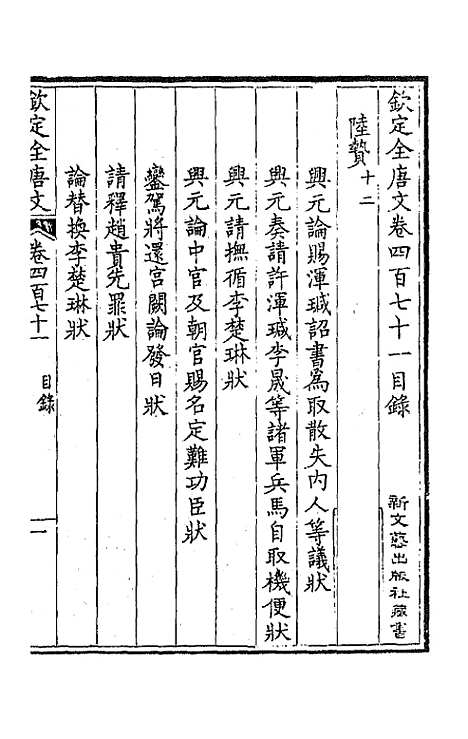 欽定全唐文卷四百七十一目錄
新文藝出版社藏書
陸贄十二
興元論賜渾瑊詔書爲取散失內人等議狀
興元奏請許渾瑊李晟等諸軍兵馬自取機便狀
興元請撫循李楚琳狀
興元論中官及朝官賜名定難功臣狀
鑾駕將還宮闕論發日狀
請釋趙貴先罪狀
論替換李楚琳狀
欽定全唐文 卷四百七十一 目錄 一